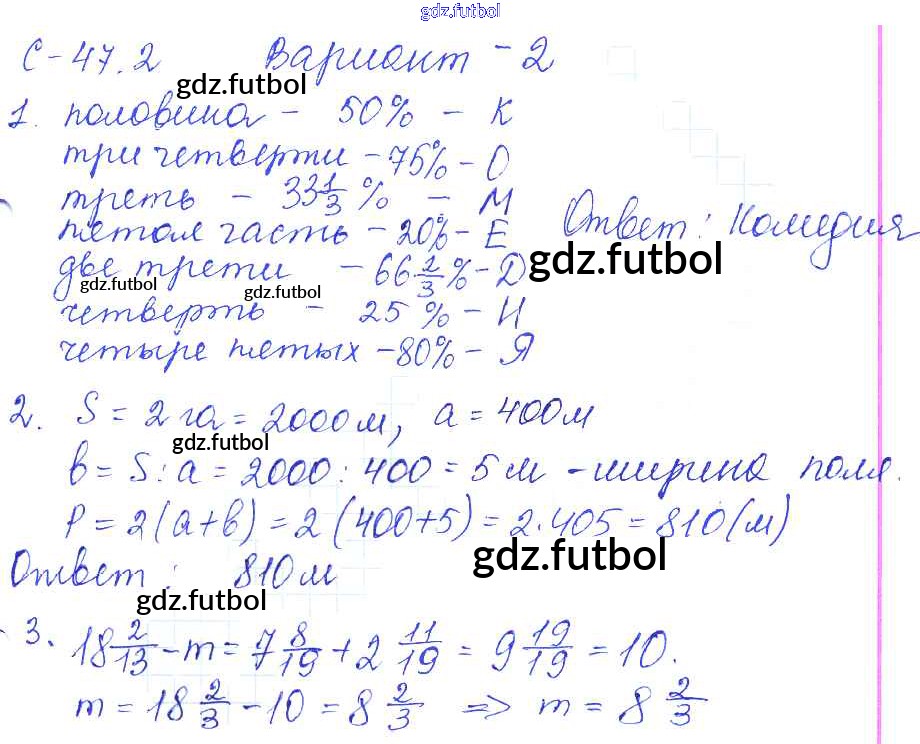 gdz.futbol
С-47.2 Вариант-2
gdz.futbol
1. половина - 50% - К
три четверти - 75% - О
треть - 33 1/3 % - М
пятая часть - 20% - Е Ответ: Комедия
gdz.futbol
две трети - 66 2/3 % - Д
gdz.futbol gdz.futbol
четверть - 25 % - И
четыре пятых - 80% - Я
2. S = 2 га = 2000 м, a = 400 м
gdz.futbol
b = S : a = 2000 : 400 = 5 м - ширина поля.
P = 2(a+b) = 2(400+5) = 2·405 = 810 (м)
gdz.futbol
Ответ: 810 м
gdz.futbol
3. 18 2/13 - m = 7 8/19 + 2 11/19 = 9 19/19 = 10.
m = 18 2/3 - 10 = 8 2/3 => m = 8 2/3